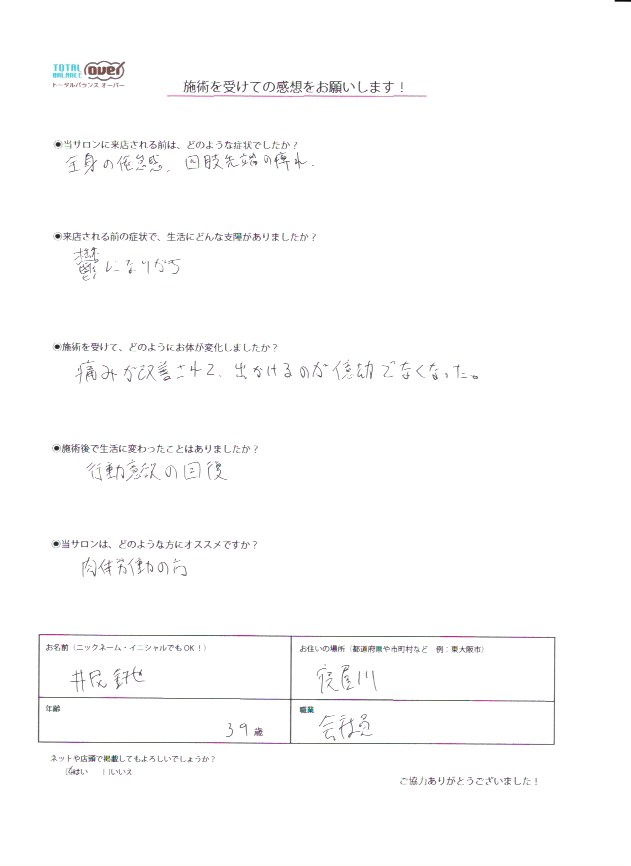 TOTAL BALANCE over
トータルバランス オーバー
施術を受けての感想をお願いします！
◉当サロンに来店される前は、どのような症状でしたか？
全身の倦怠感、四肢先端の痺れ.
◉来店される前の症状で、生活にどんな支障がありましたか？
鬱になりがち
◉施術を受けて、どのようにお体が変化しましたか？
痛みが改善されて、出かけるのが億劫でなくなった。
◉施術後で生活に変わったことはありましたか？
行動意欲の回復
◉当サロンは、どのような方にオススメですか？
肉体労働の方
お名前（ニックネーム・イニシャルでもOK！）
お住いの場所（都道府県や市町村など 例：東大阪市）
寝屋川
年齢
39歳
職業
会社員
ネットや店頭で掲載してもよろしいでしょうか？
はい いいえ
ご協力ありがとうございました！